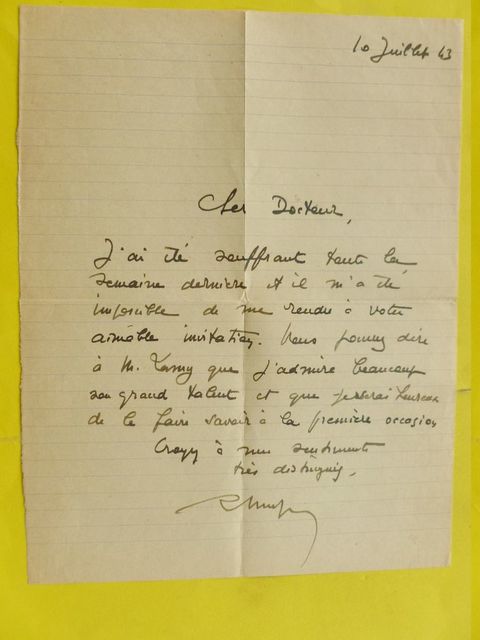 10 Juillet 43
Cher Docteur,
J'ai été souffrant toute la
semaine dernière et il m'a été
impossible de me rendre à votre
aimable invitation. Vous pouvez dire
à M. que j'admire beaucoup
son grand talent et que je serai heureux
de le faire savoir à la première occasion
Croyez à mes sentiments
très distingués.